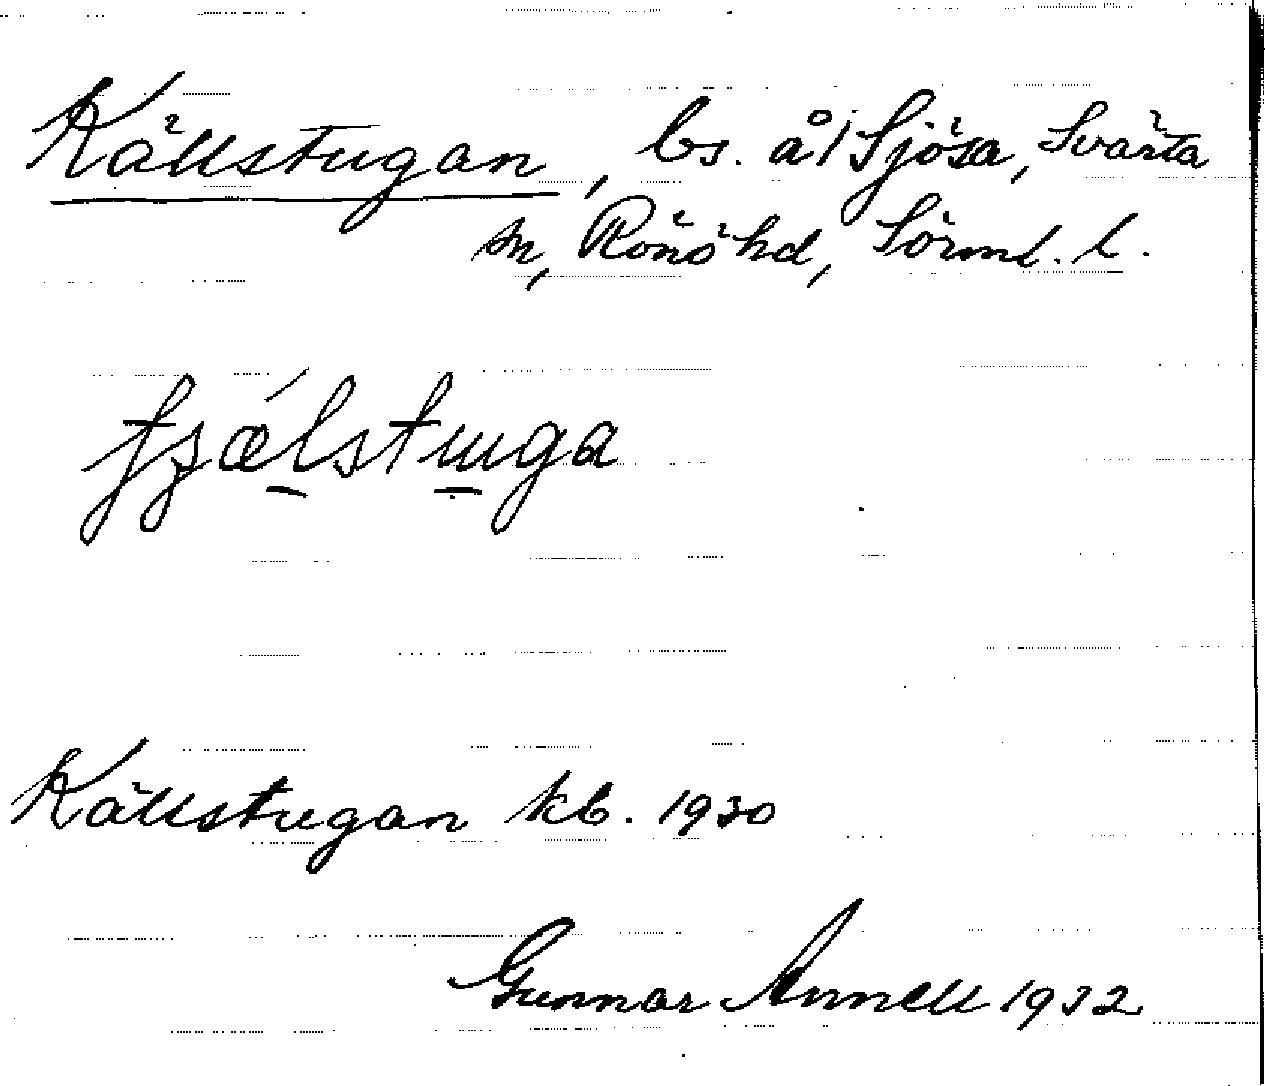 Källstugan, bs. å/Sjösa, Svärta
sn, Rönö hd, Sörml. l.
tjǽlstuga
Källstugan kb. 1930
Gunnar Annell 1932